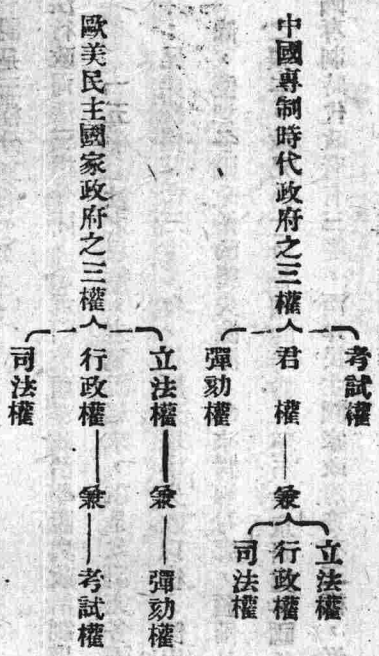 中國專制時代政府之三權
考試權
君權
兼
立法權
行政權
司法權
彈劾權
歐美民主國家政府之三權
立法權
兼
彈劾權
行政權
兼
考試權
司法權